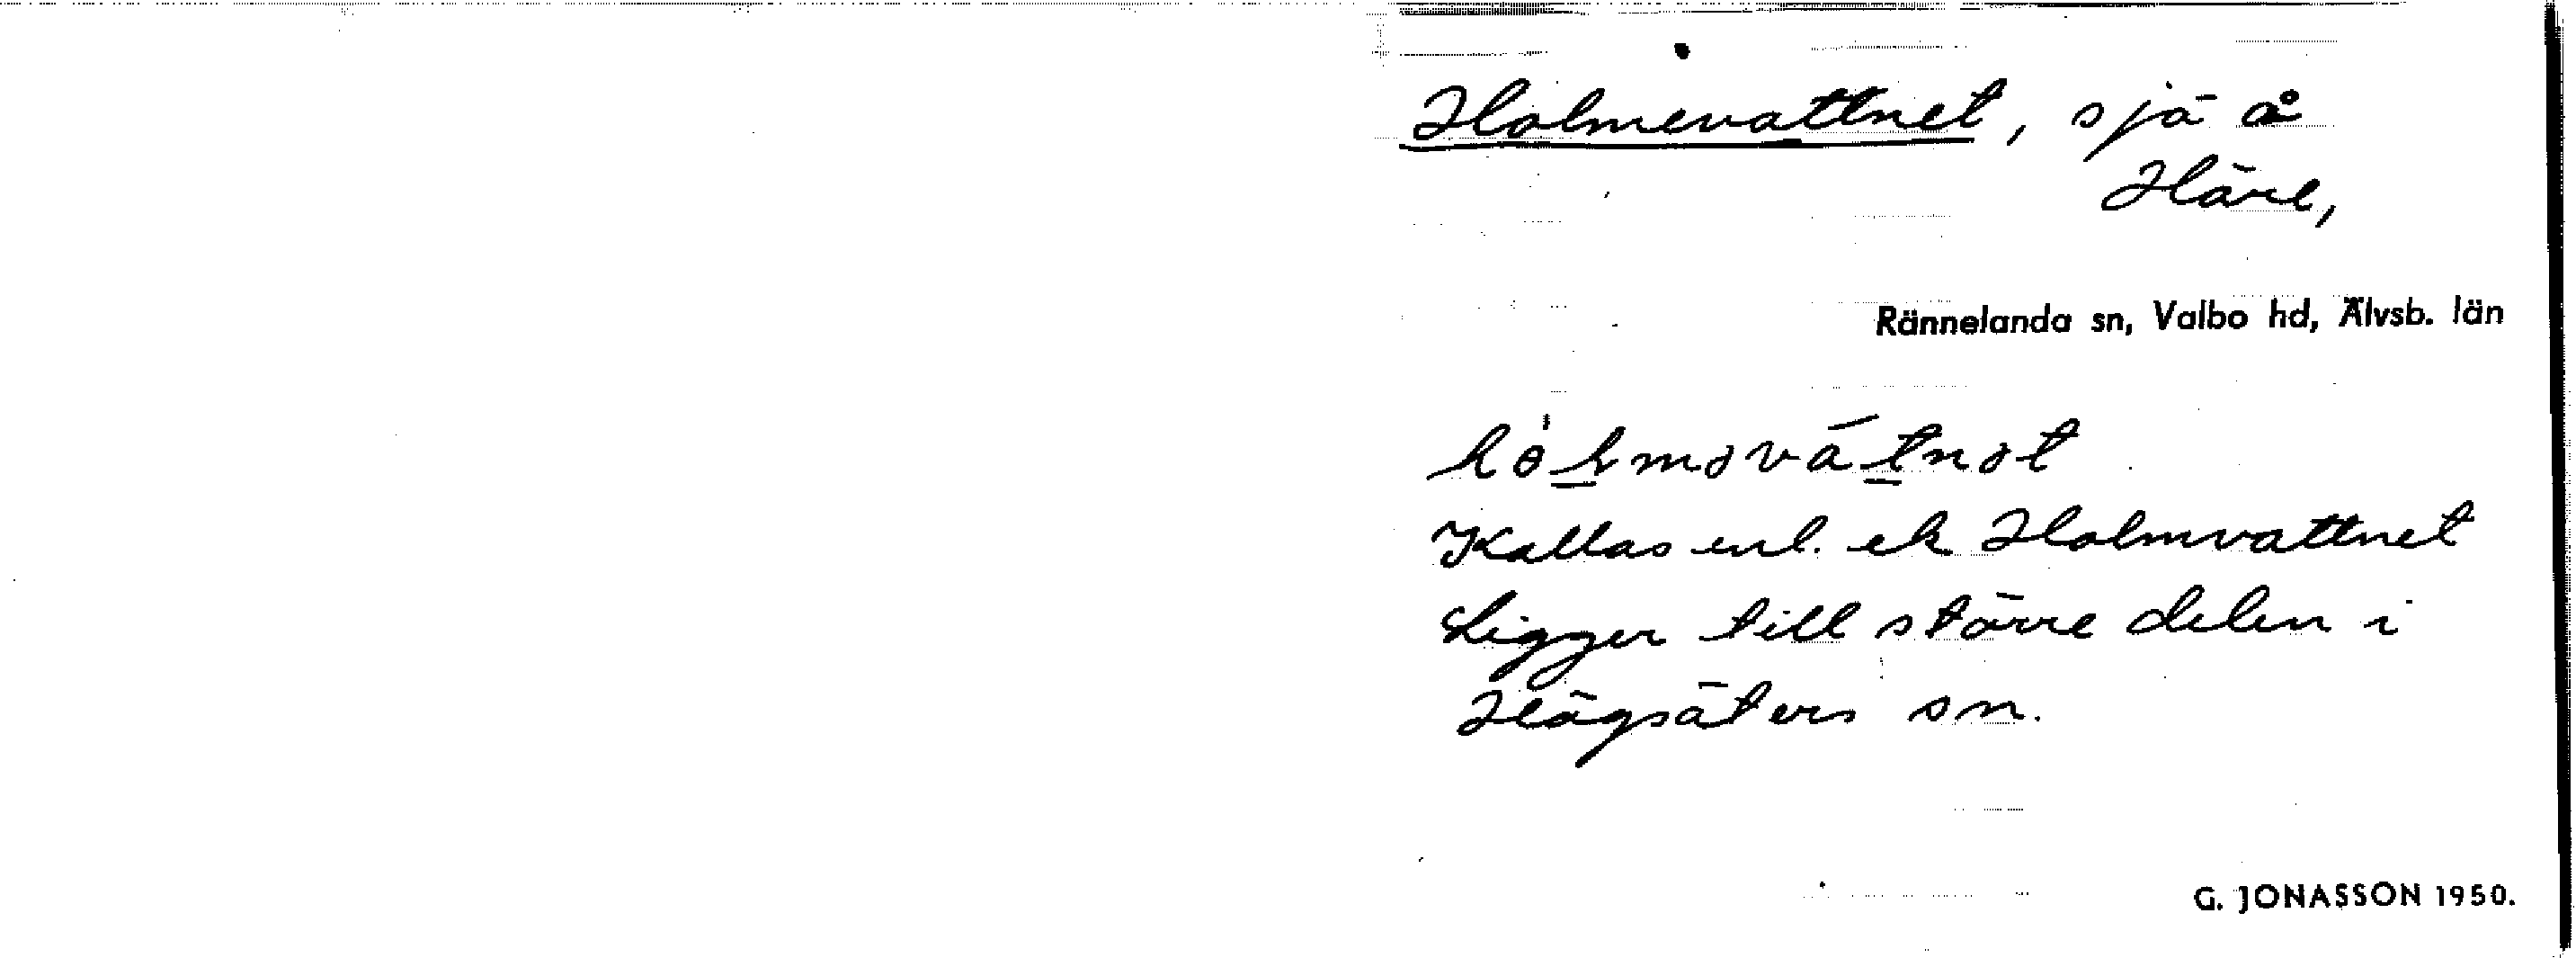 Holmevattnet, sjö å
Häre,
Rännelanda sn, Valbo hd, Älvsb. län
Kallas enl. ek Holmvattnet
Ligger till större delen i
Högsäters sn.
G. JONASSON 1950.